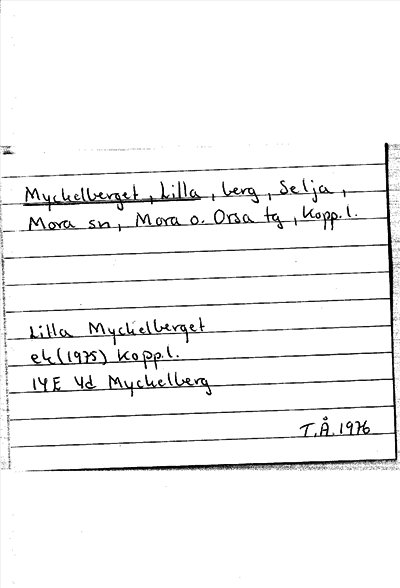 Myckelberget, Lilla, berg, Selja,
Mora sn, Mora o. Orsa tg, Kopp.l.
Lilla Myckelberget
ek(1975) Kopp.l.
14E 4d Myckelberg
T.Å.1976